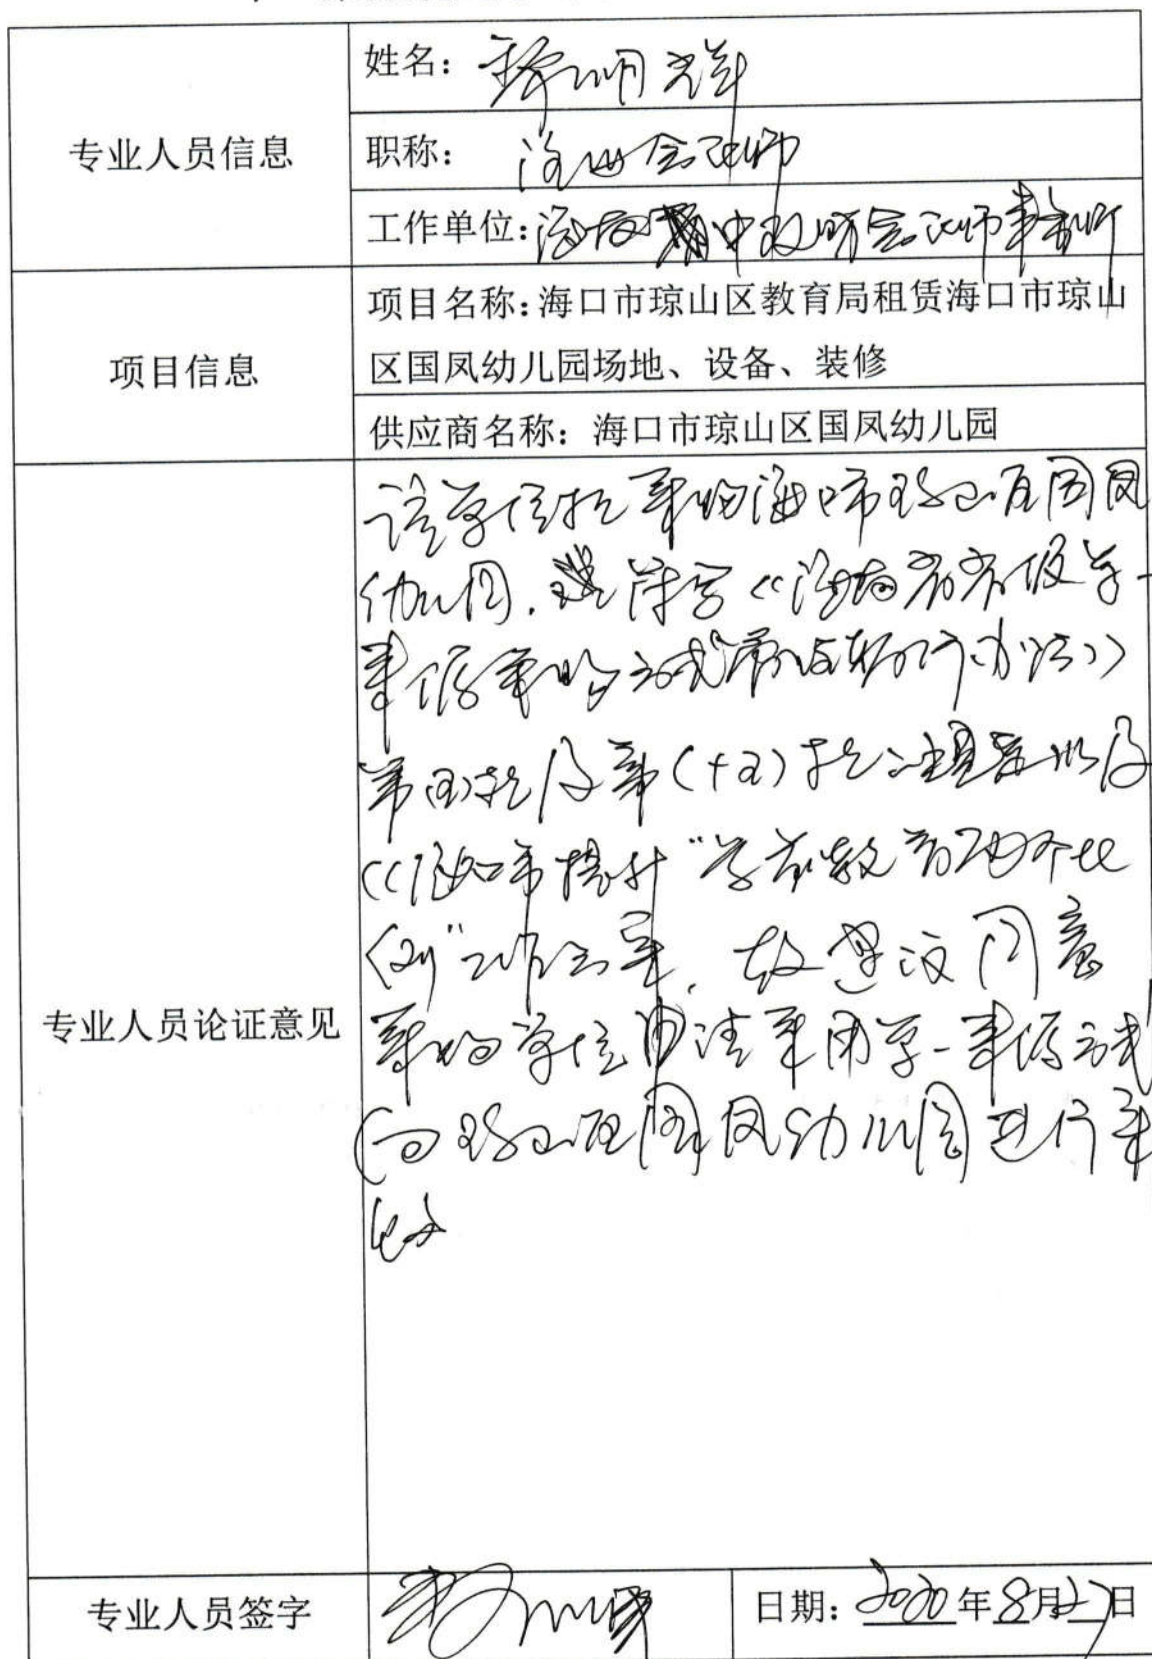 专业人员信息
姓名：
职称： 注册会计师
工作单位：海南中政财会计师事务所
项目信息
项目名称：海口市琼山区教育局租赁海口市琼山
区国凤幼儿园场地、设备、装修
供应商名称：海口市琼山区国凤幼儿园
专业人员论证意见
该单位拟采购海口市琼山区国凤
幼儿园，符合《海南省省级单一
来源采购方式审核暂行办法》
第(四)款及第(十五)款 以及
《海口市提升"学前教育两个比
例"工作方案，故建议同意
采购单位申请采用单一来源方式
向琼山区国凤幼儿园进行采
购
专业人员签字
日期：2020年8月27日